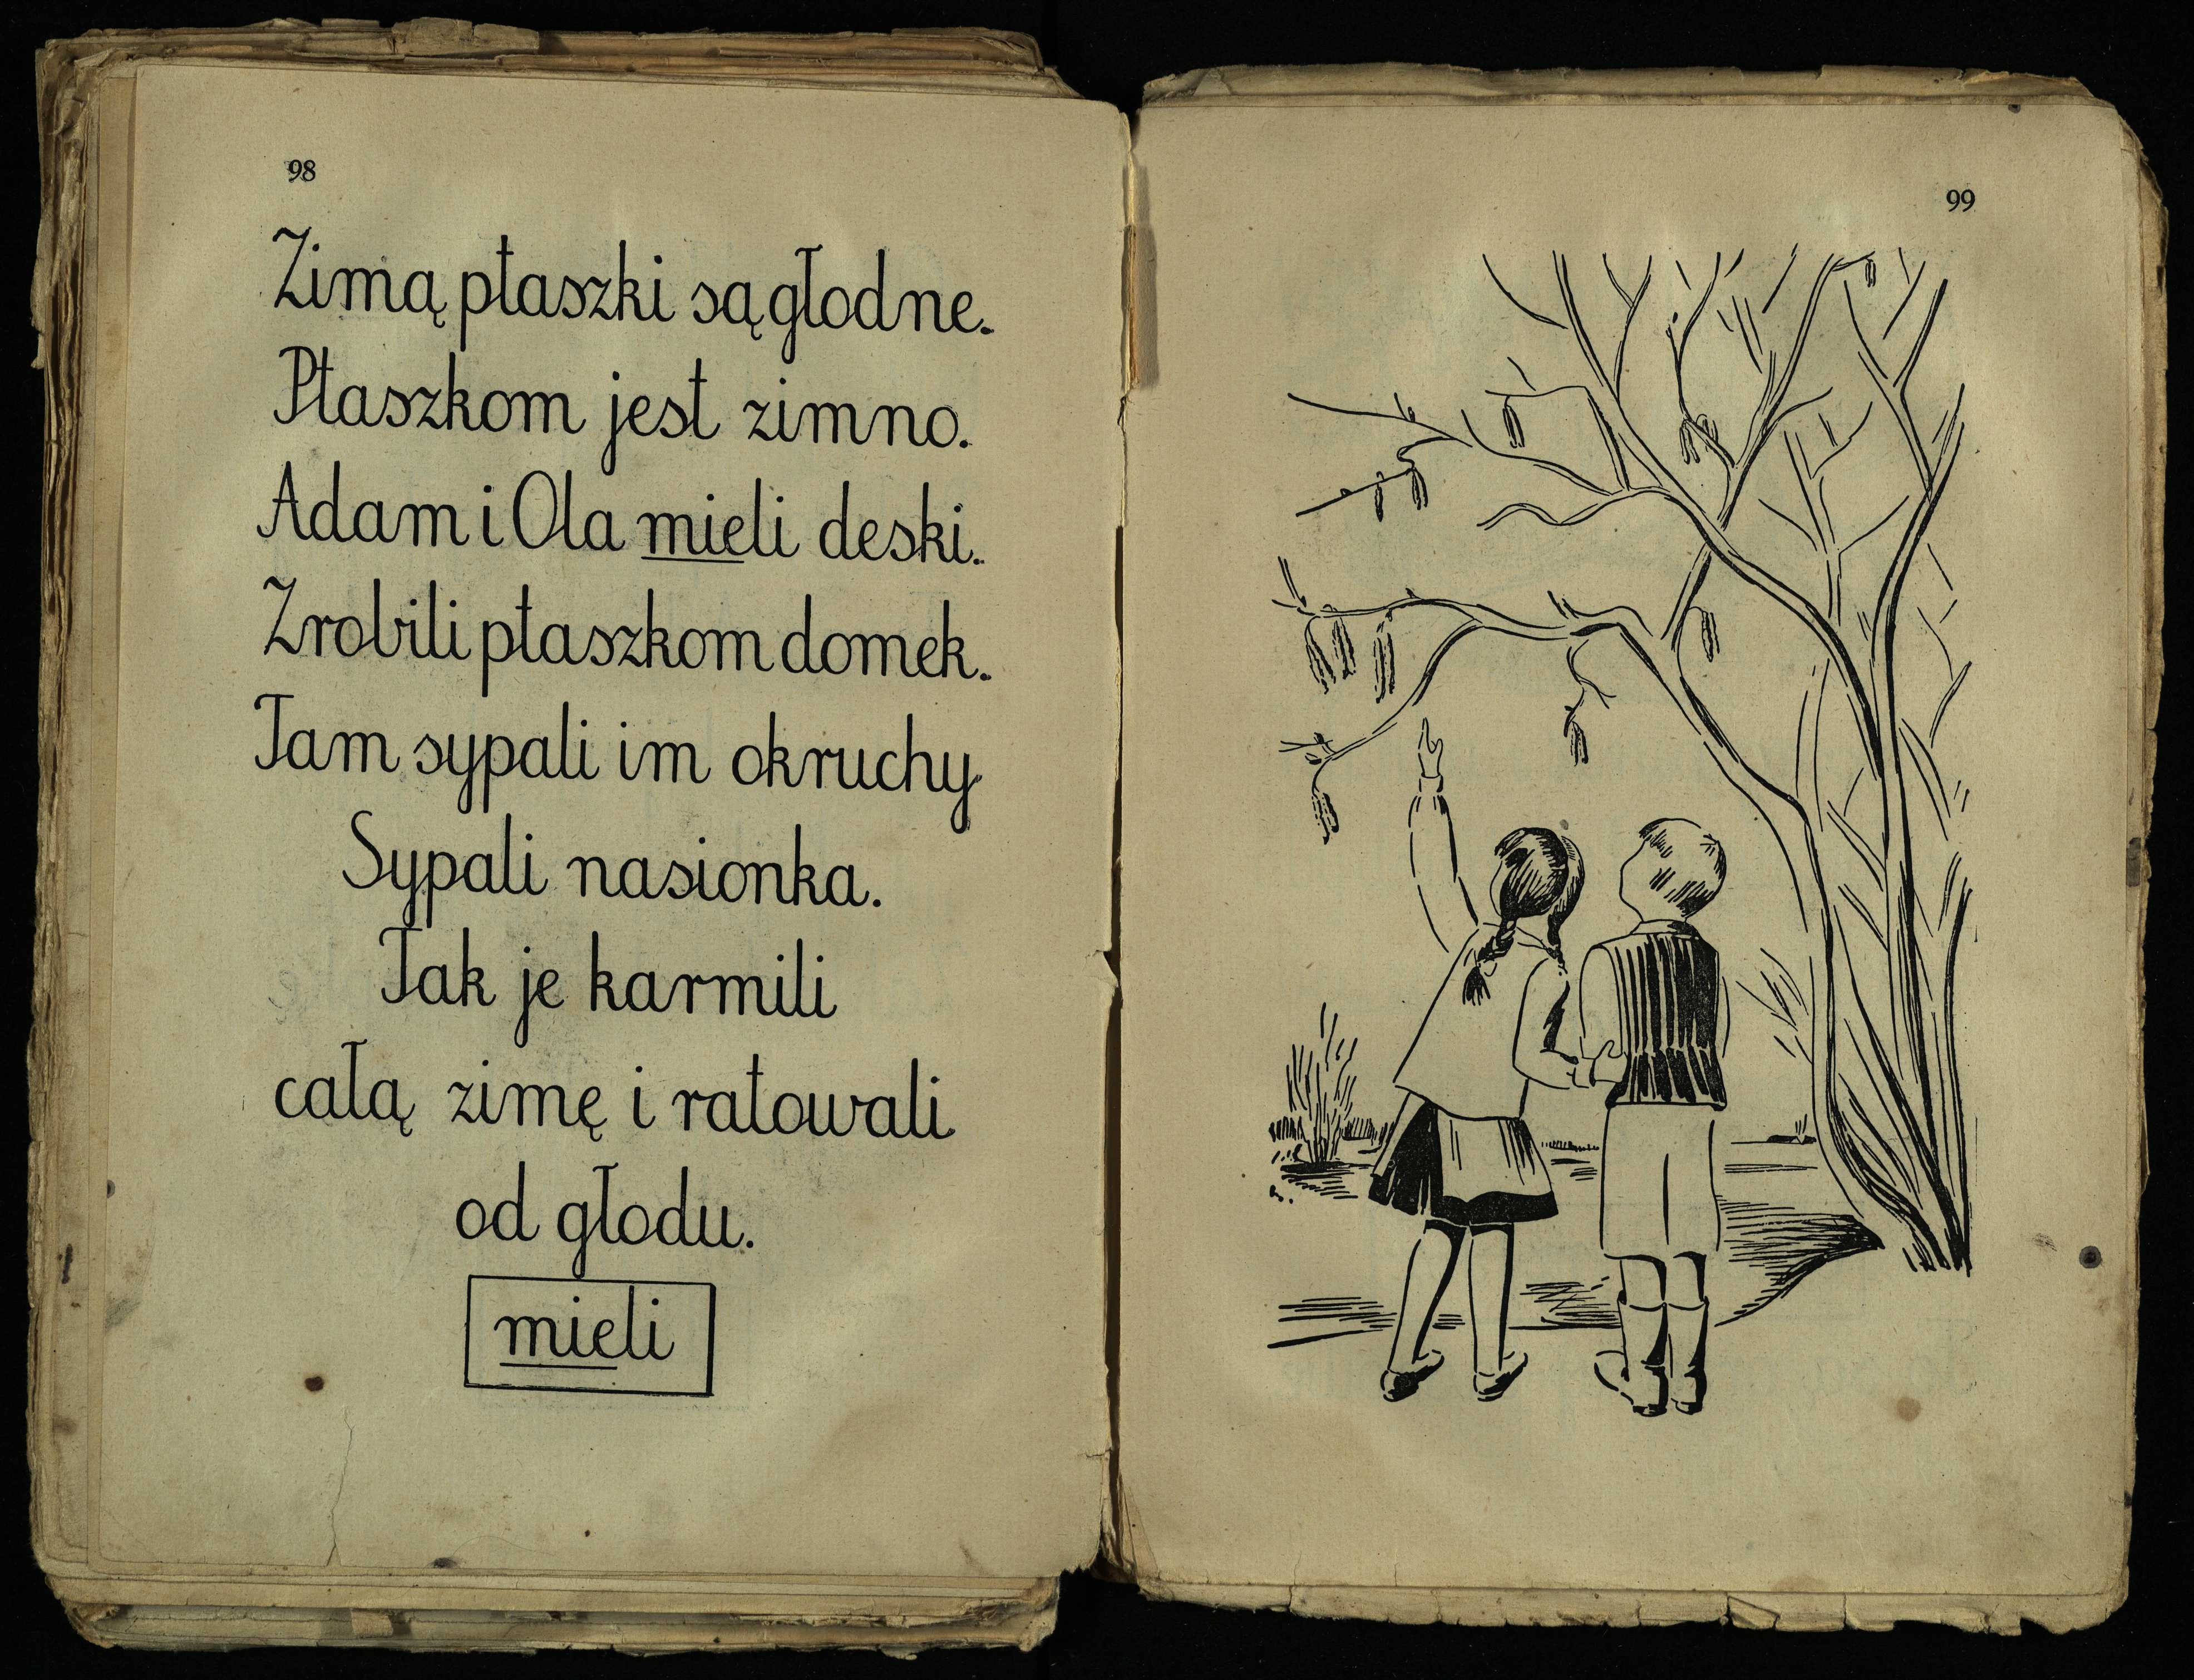 98
Zimą ptaszki są głodne.
Ptaszkom jest zimno.
Adam i Ola mieli deski.
Zrobili ptaszkom domek.
Tam sypali im okruchy.
Sypali nasionka.
Tak je karmili
całą zimę i ratowali
od głodu.
mieli
99